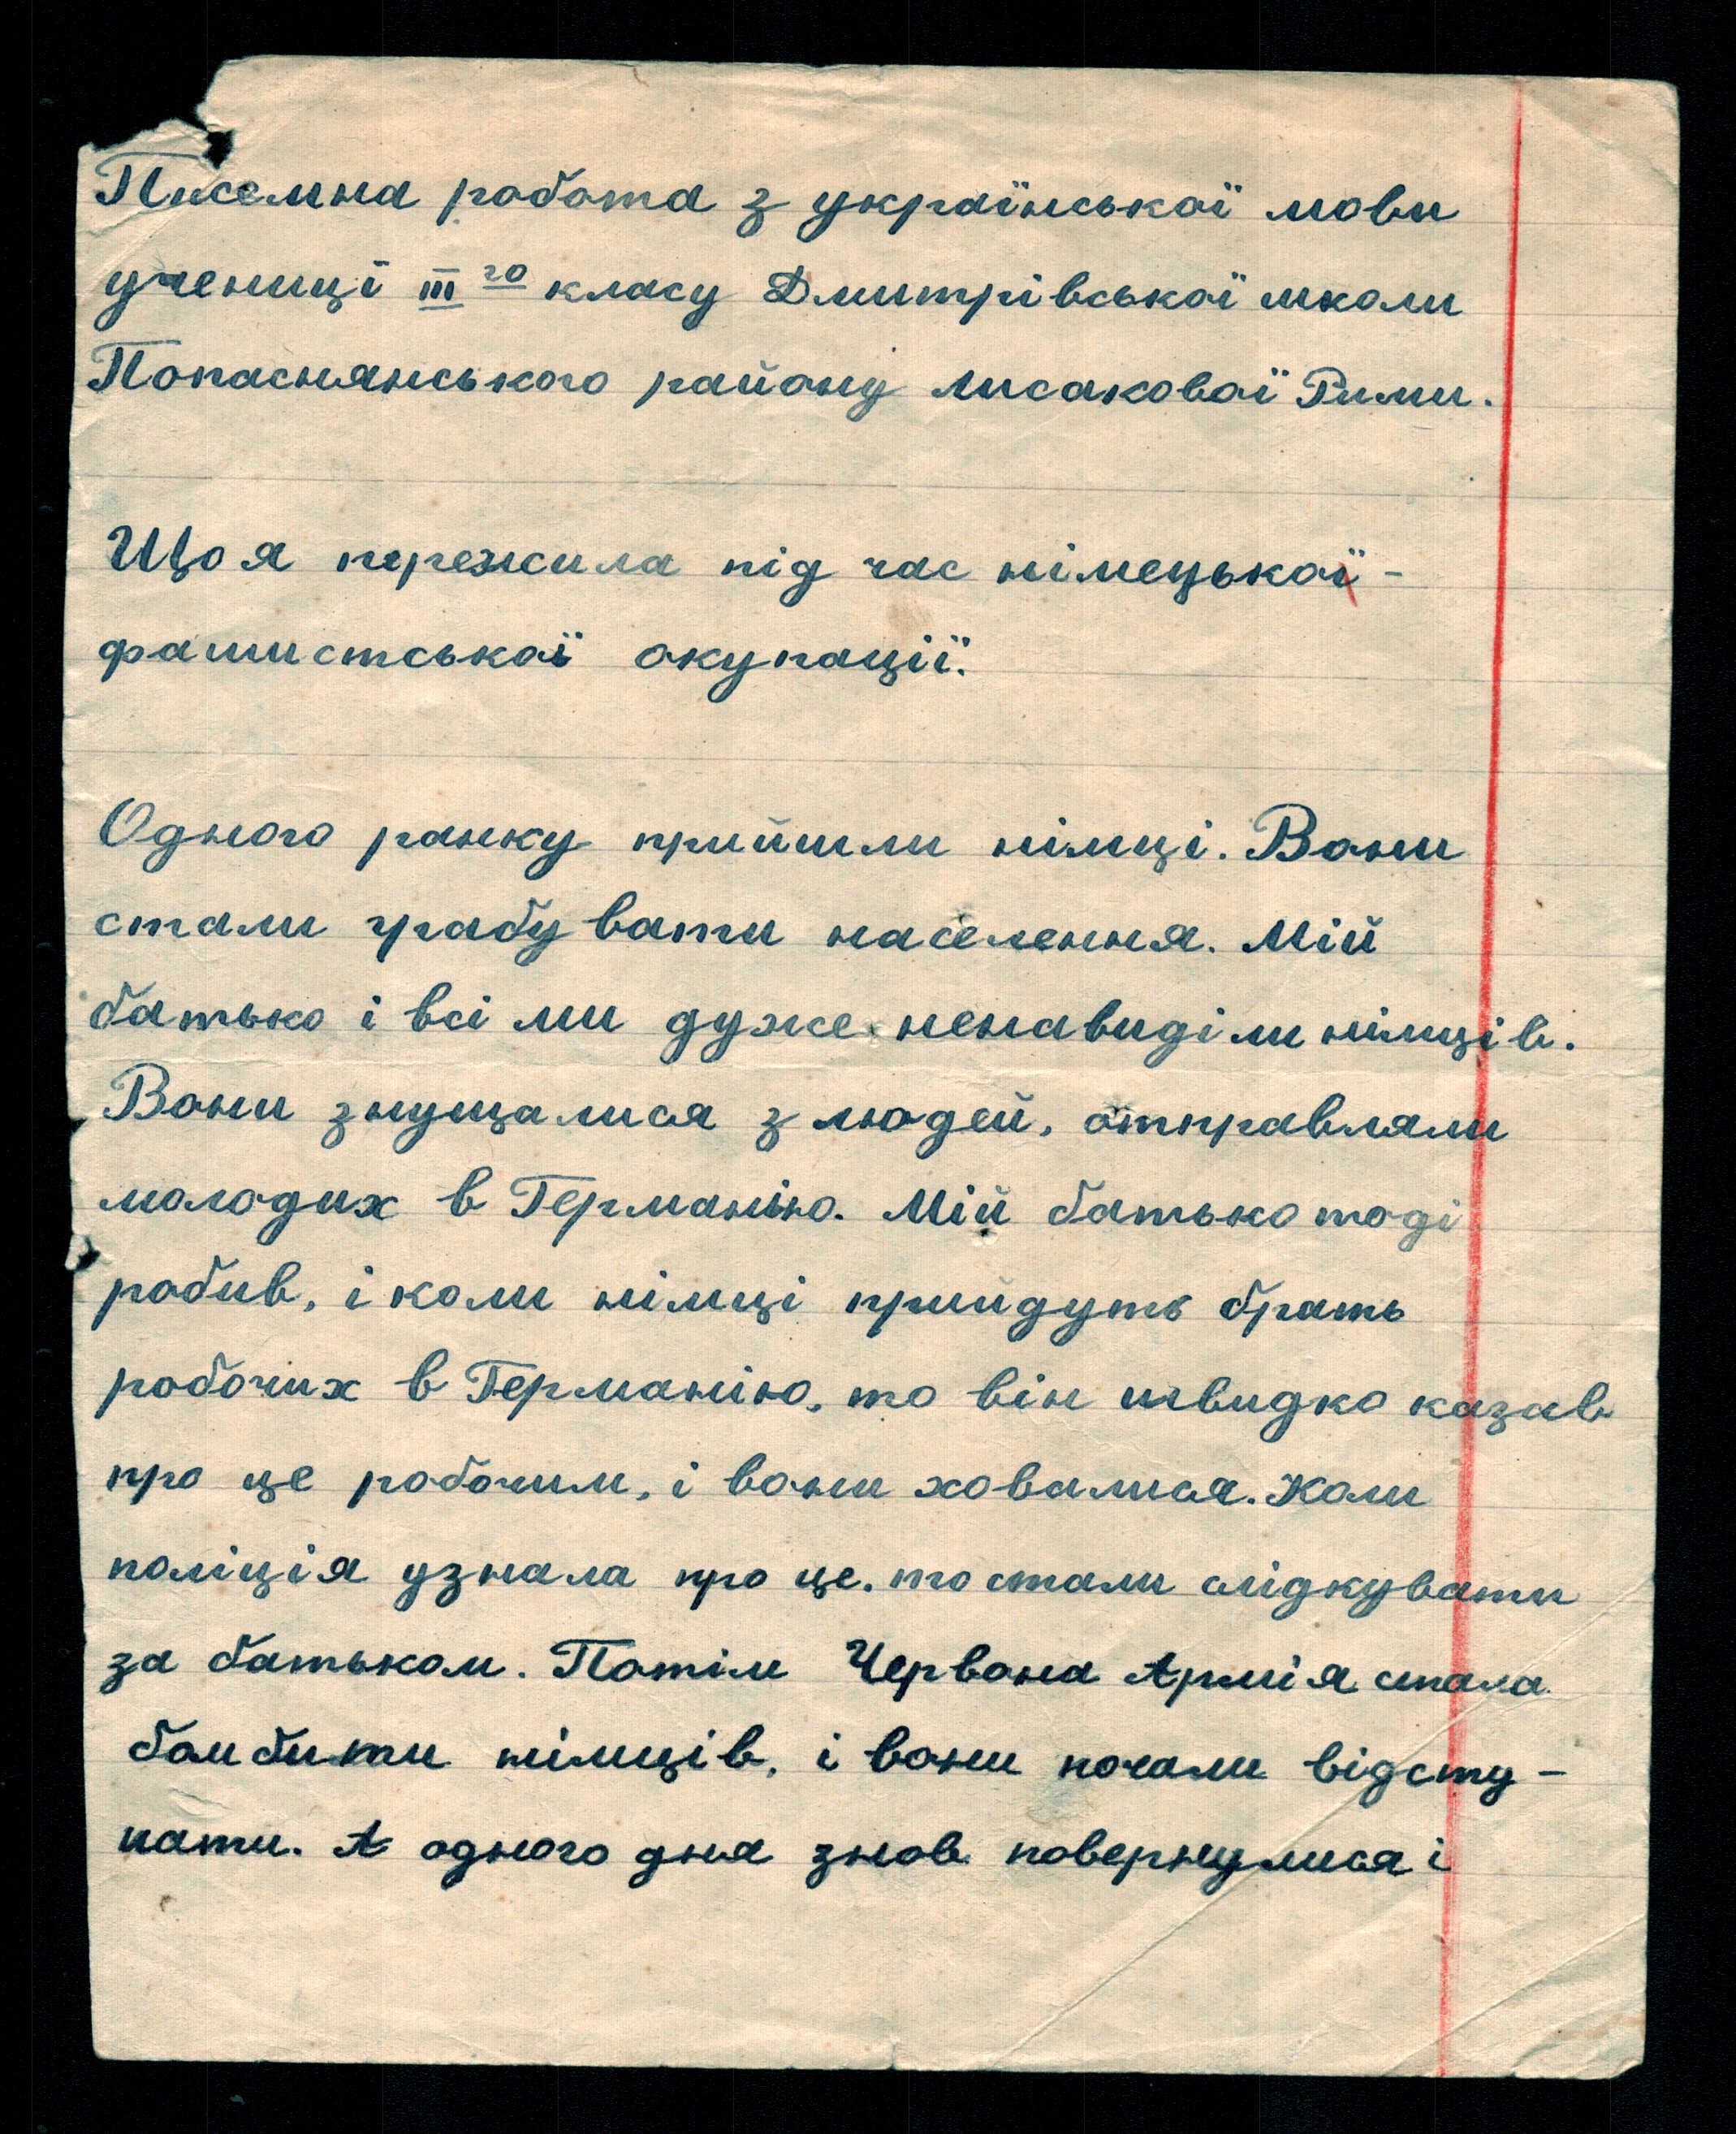 Писемна робота з української мови
учениці III го класу Дмитрівської школи
Попаснянського району Лисакової Рими.
Що я пережила під час німецької-
фашистської окупації.
Одного ранку прийшли німці. Вони
стали грабувати населення. Мій
батько і всі ми дуже ненавиділи німців.
Вони знущалися з людей, отправляли
молодих в Германію. Мій батько тоді
робив, і коли німці прийдуть брать
робочих в Германію, то він швидко казав
про це робочим, і вони ховалися. Коли
поліція узнала про це, то стали слідкувати
за батьком. Потім Червона Армія стала
бомбити німців, і вони почали відсту-
пати. А одного дня знов повернулися і